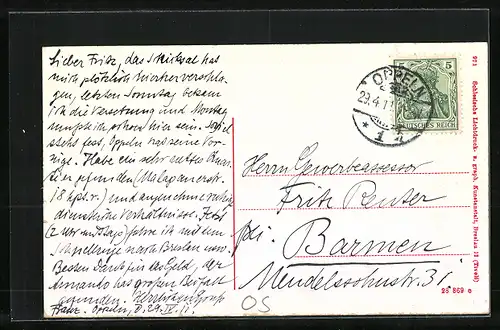 Lieber Fritz, das Schicksal hat
mich plötzlich hierher verschla-
gen, letzten Sonntag bekam
ich die Versetzung und Montag
mußte ich schon hier sein. So viel
steht fest, Oppeln hat seine Vor-
züge. Habe ein sehr nettes Quar-
tier gefunden (Malapanerstr.
18 hps. r.) und angenehme
dienstliche Verhältnisse. Jetzt
(2 Uhr) fahre ich mit dem
nach Breslau
Besten Dank für das Geld, der
hat großen Beifall
gefunden. Herzlichen Gruß
Franz. Oppeln, d. 29. IV. 11.
OPPELN
29.4.11
* 1 z
5
DEUTSCHES REICH
Herrn Gewerbeassessor
Fritz Reuter
Barmen
Mendelssohnstr. 31
OS
911 Schlesische Lichtdruck- u. graph. Kunstanstalt, Breslau 10
25 869 o